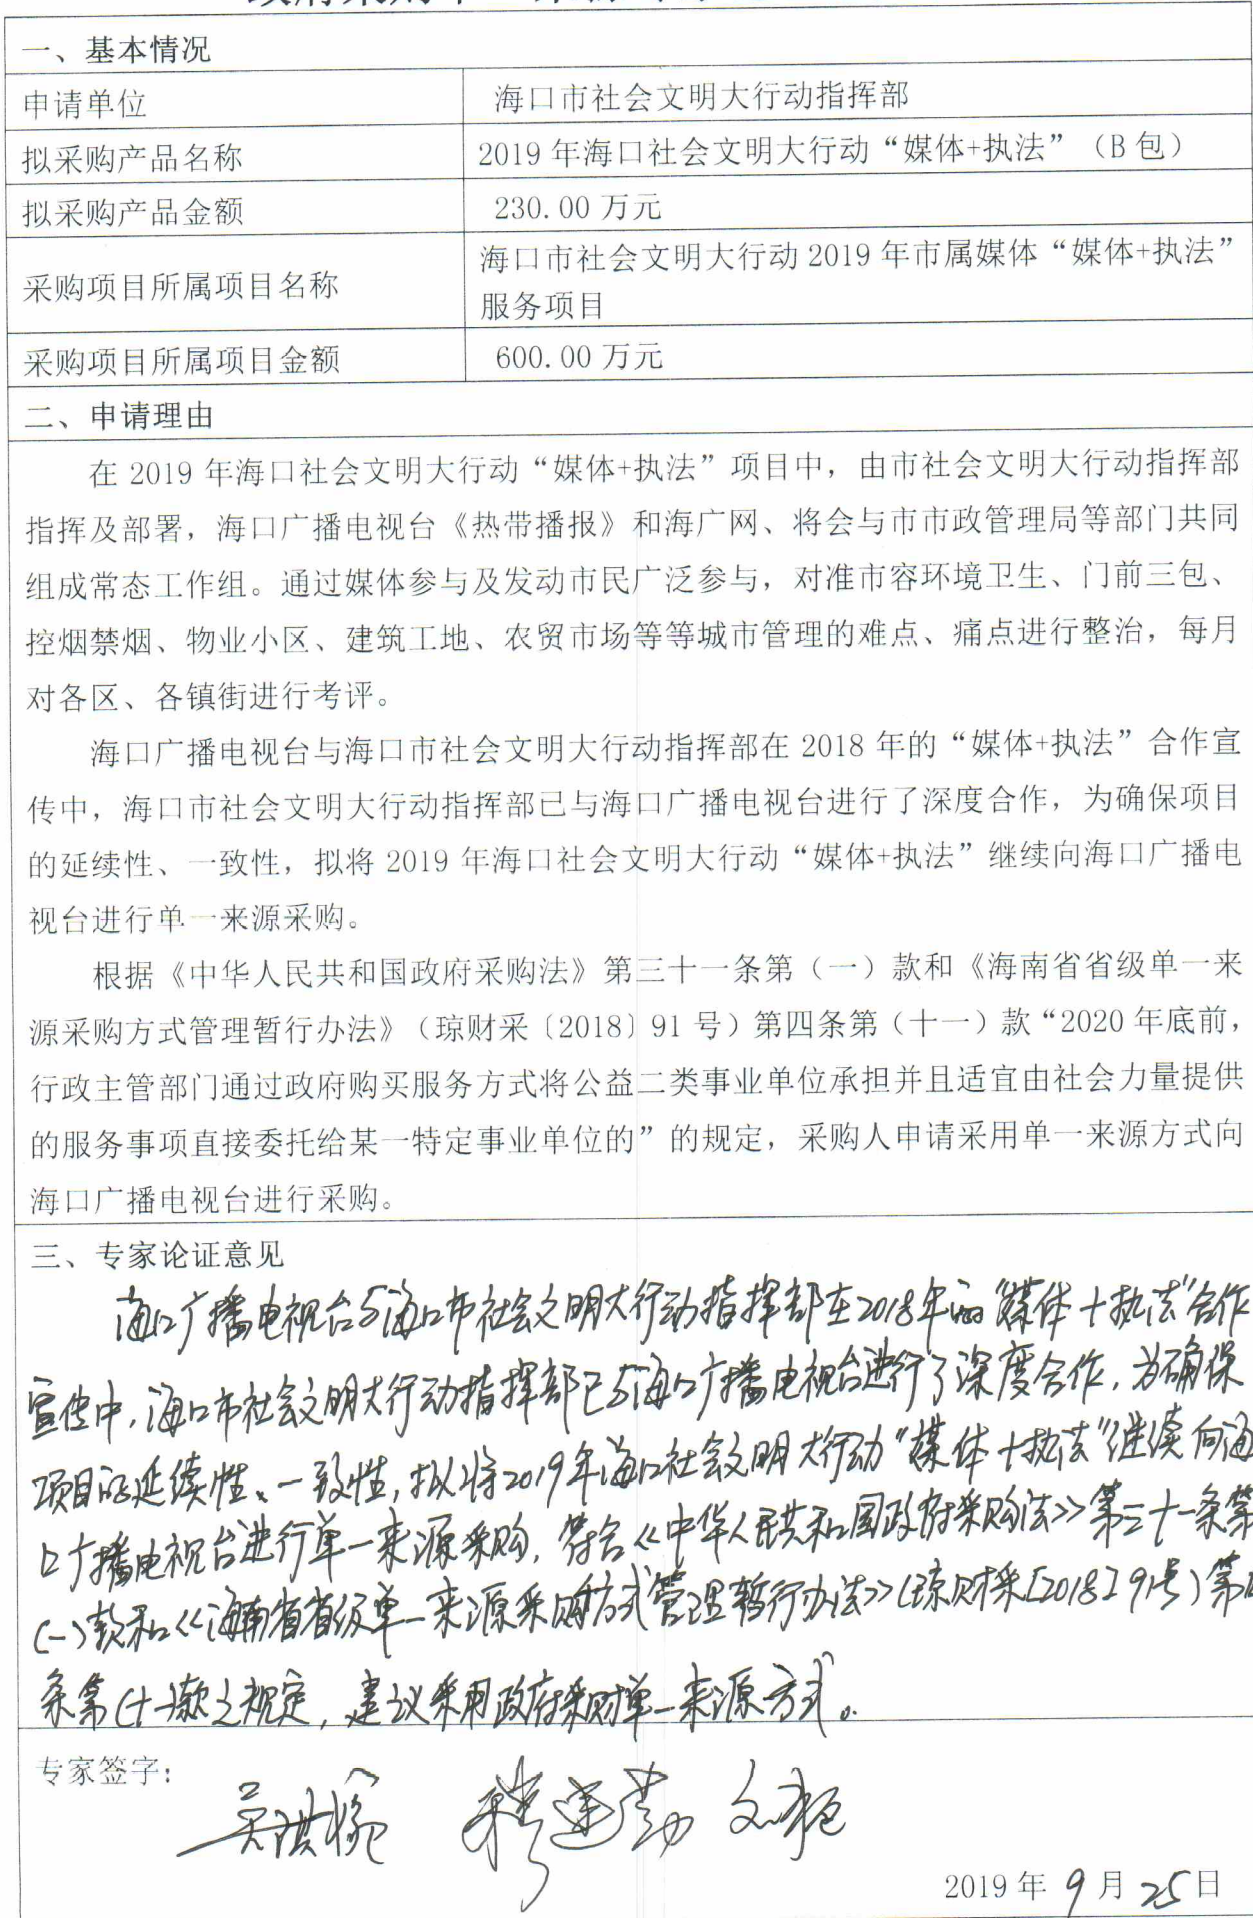 一、基本情况
申请单位 海口市社会文明大行动指挥部
拟采购产品名称 2019年海口社会文明大行动“媒体+执法”（B包）
拟采购产品金额 230.00万元
采购项目所属项目名称 海口市社会文明大行动2019年市属媒体“媒体+执法”
服务项目
采购项目所属项目金额 600.00万元
二、申请理由
在2019年海口社会文明大行动“媒体+执法”项目中，由市社会文明大行动指挥部
指挥及部署，海口广播电视台《热带播报》和海广网、将会与市市政管理局等部门共同
组成常态工作组。通过媒体参与及发动市民广泛参与，对准市容环境卫生、门前三包、
控烟禁烟、物业小区、建筑工地、农贸市场等等城市管理的难点、痛点进行整治，每月
对各区、各镇街进行考评。
海口广播电视台与海口市社会文明大行动指挥部在2018年的“媒体+执法”合作宣
传中，海口市社会文明大行动指挥部已与海口广播电视台进行了深度合作，为确保项目
的延续性、一致性，拟将2019年海口社会文明大行动“媒体+执法”继续向海口广播电
视台进行单一来源采购。
根据《中华人民共和国政府采购法》第三十一条第（一）款和《海南省省级单一来
源采购方式管理暂行办法》（琼财采〔2018〕91号）第四条第（十一）款“2020年底前，
行政主管部门通过政府购买服务方式将公益二类事业单位承担并且适宜由社会力量提供
的服务事项直接委托给某一特定事业单位的”的规定，采购人申请采用单一来源方式向
海口广播电视台进行采购。
三、专家论证意见
海口广播电视台与海口市社会文明大行动指挥部在2018年的“媒体+执法”合作
宣传中，海口市社会文明大行动指挥部已与海口广播电视台进行了深度合作，为确保
项目的延续性、一致性，拟将2019年海口社会文明大行动“媒体+执法”继续向海
口广播电视台进行单一来源采购，符合《中华人民共和国政府采购法》第三十一条第
(一)款和《海南省省级单一来源采购方式管理暂行办法》(琼财采[2018]91号)第四
条第(十一)款之规定，建议采用政府采购单一来源方式。
专家签字：
2019年9月25日